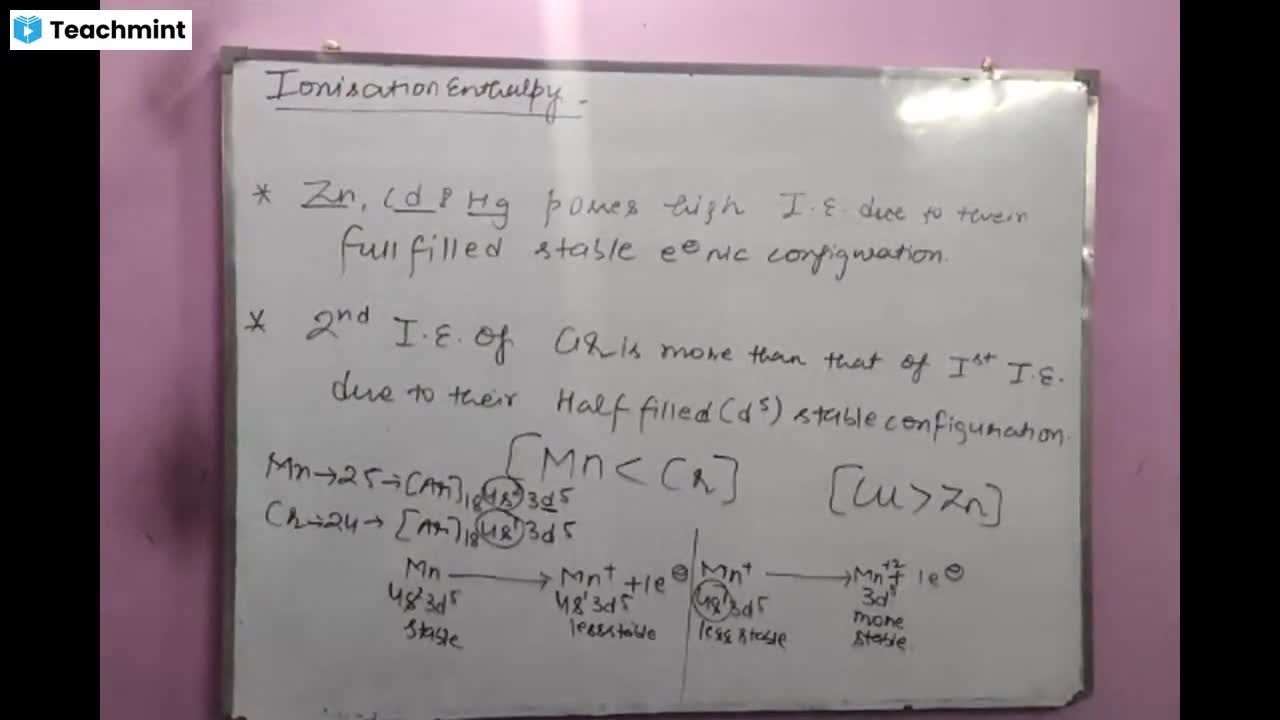 Teachmint
Ionisation Enthalpy.
* Zn, Cd & Hg poses high I.E. due to their
full filled stable e⊖nic configuration.
* 2nd I.E. of Cr is more than that of Ist I.E.
due to their Half filled (d5) stable configuration.
[Mn < Cr] [Cu > Zn]
Mn → 25 → [Ar]18 4s² 3d5
Cr → 24 → [Ar]18 4s¹ 3d5
Mn → Mn+ + 1e⊖ Mn+ → Mn+2 + 1e⊖
4s² 3d5 4s¹ 3d5 4s¹ 3d5 3d5
stable less stable less stable more
stable